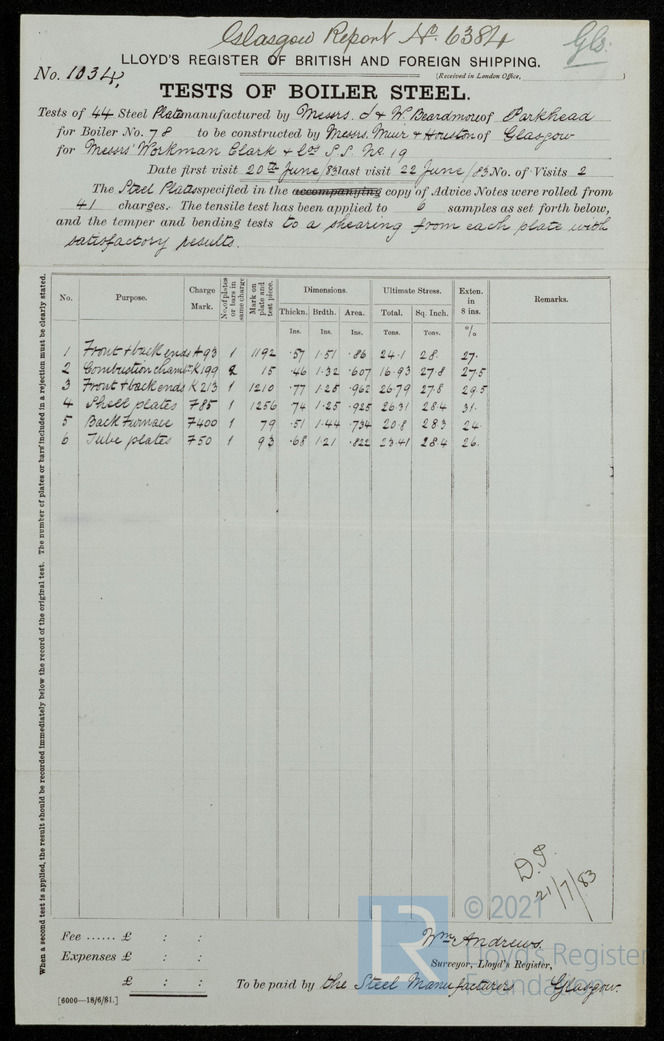 Glasgow Report No. 6384
Gls.
LLOYD'S REGISTER OF BRITISH AND FOREIGN SHIPPING.
No. 1034,
(Received in London Office, )
TESTS OF BOILER STEEL.
Tests of 44 Steel Plates manufactured by Messrs. J & W. Beardmore of Parkhead
for Boiler No. 78 to be constructed by Messrs. Muir & Houston of Glasgow
for Messrs Workman Clark & Cos S.S. No. 19
Date first visit 20th June/83 last visit 22 June/83 No. of Visits 2
The Steel Plates specified in the accompanying copy of Advice Notes were rolled from
41 charges. The tensile test has been applied to 6 samples as set forth below,
and the temper and bending tests to a shearing from each plate with
satisfactory results.
When a second test is applied, the result should be recorded immediately below the record of the original test. The number of plates or bars included in a rejection must be clearly stated.
No. Purpose. Charge Mark. No. of plates or bars in same charge Mark on plate and test piece. Dimensions. Ultimate Stress. Exten. in 8 ins. Remarks.
Thickn. Brdth. Area. Total. Sq. Inch.
Ins. Ins. Ins. Tons. Tons. %
1 Front & back ends A93 1 1192 .57 1.51 .86 24.1 28. 27.
2 Combustion chamb. K199 2 15 .46 1.32 .607 16.93 27.8 27.5
3 Front & back ends K213 1 1210 .77 1.25 .962 26.79 27.8 29.5
4 Shell plates 785 1 1256 .74 1.25 .925 26.31 28.4 31.
5 Back Furnace 7400 1 79 .51 1.44 .734 20.8 28.3 24
6 Tube plates 750 1 93 .68 1.21 .822 23.41 28.4 26.
D.P.
21/7/83
© 2021
LR
Lloyd's Register
Foundation
Fee ...... £ : :
Wm Andrews.
Expenses £ : :
Surveyor, Lloyd's Register,
£ : :
To be paid by the Steel Manufacturers Glasgow.
[6000—18/6/81.]